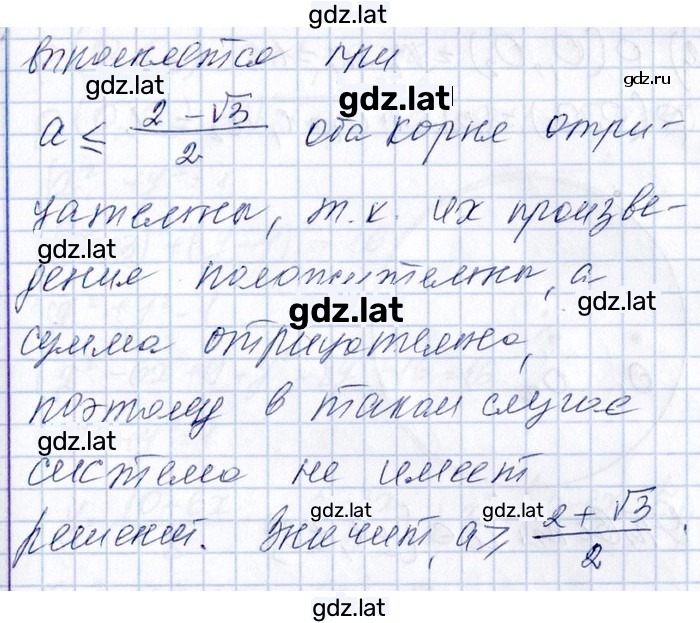 gdz.lat
выполняется при
gdz.lat
gdz.lat
gdz.ru
a ≤ (2 - √3)/2 оба корня отри-
цательны, т. к. их произве-
gdz.lat
дение положительны, а
gdz.lat
сумма отрицательна,
поэтому в таком случае
gdz.lat
система не имеет
решений. Значит, a ≥ (2 + √3)/2.
gdz.lat
gdz.lat
gdz.lat